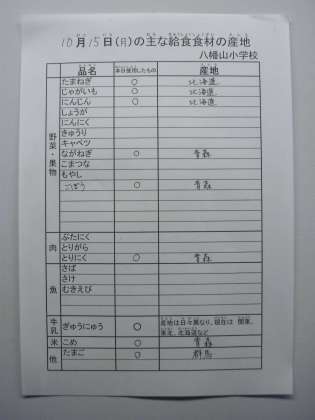 10月15日(月)の主な給食食材の産地
八幡山小学校
品名 本日使用したもの 産地
野菜・果物
たまねぎ ○ 北海道
じゃがいも ○ 北海道
にんじん ○ 北海道
しょうが
にんにく
きゅうり
キャベツ
ながねぎ ○ 青森
こまつな
もやし
ごぼう ○ 青森
肉
ぶたにく
とりがら
とりにく ○ 青森
魚
さば
さけ
むきえび
牛乳 ぎゅうにゅう ○ 産地は日々異なり、現在は 関東、
東北、北海道など
米 こめ ○ 青森
他 たまご ○ 群馬